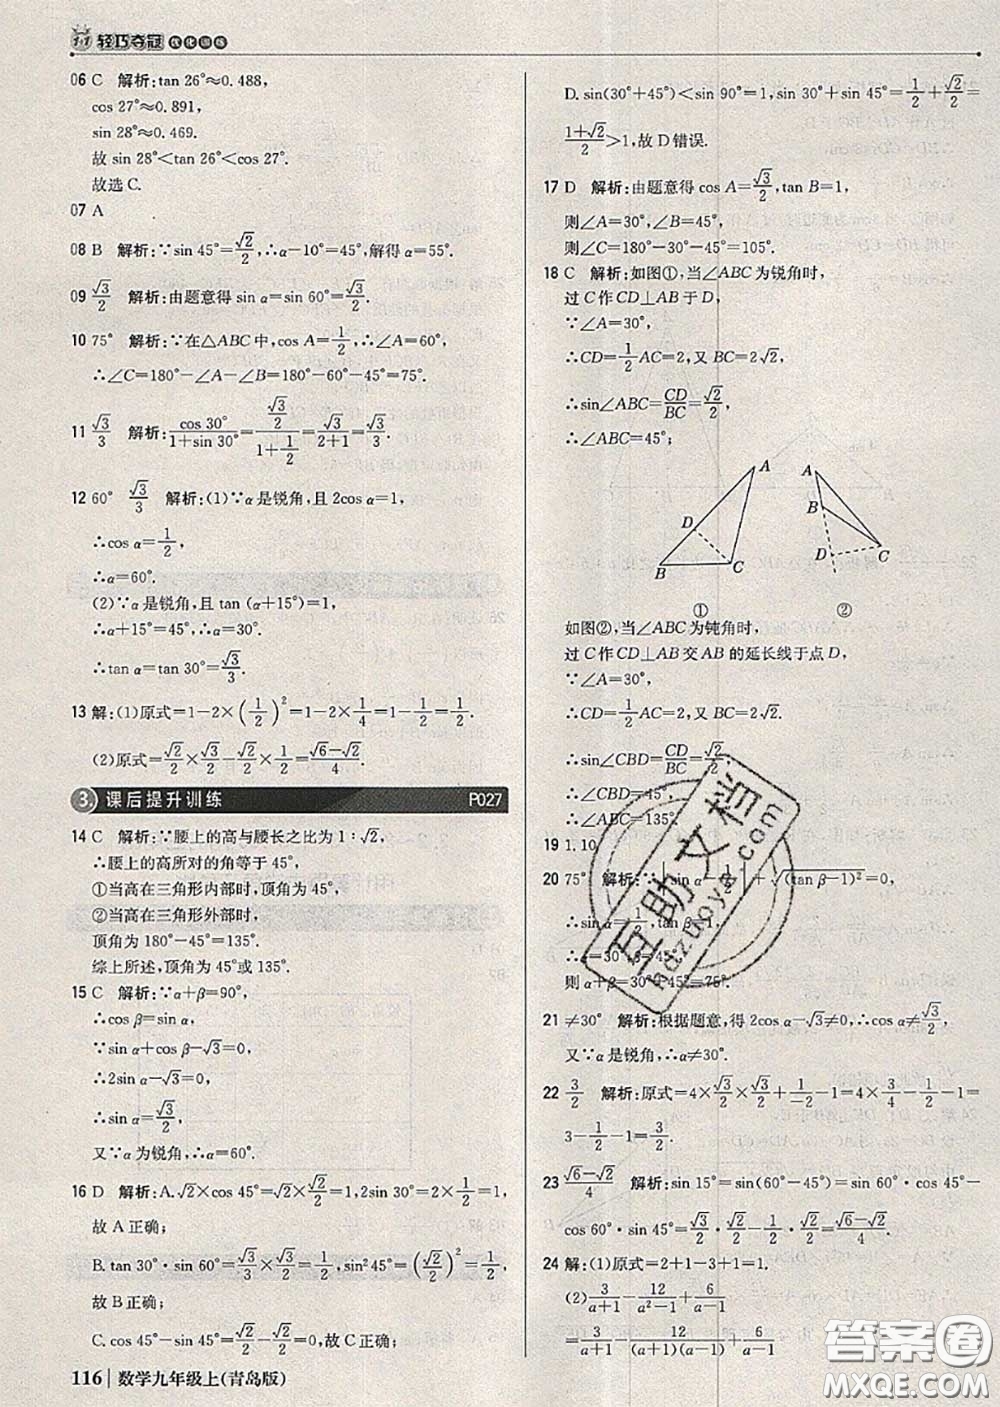 1+1 轻巧夺冠 优化训练
06 C 解析:tan 26°≈0.488,
cos 27°≈0.891,
sin 28°≈0.469.
故 sin 28°<tan 26°<cos 27°.
故选 C.
07 A
08 B 解析:∵sin 45°=√2/2,∴α-10°=45°,解得 α=55°.
09 √3/2 解析:由题意得 sin α=sin 60°=√3/2.
10 75° 解析:∵在△ABC 中,cos A=1/2,∴∠A=60°,
∴∠C=180°-∠A-∠B=180°-60°-45°=75°.
11 √3/3 解析:cos 30°/(1+sin 30°)=(√3/2)/(1+1/2)=√3/(2+1)=√3/3.
12 60° √3/3 解析:(1)∵α是锐角,且 2cos α=1,
∴cos α=1/2,
∴α=60°.
(2)∵α是锐角,且 tan (α+15°)=1,
∴α+15°=45°,∴α=30°,
∴tan α=tan 30°=√3/3.
13 解:(1)原式=1-2×(1/2)²=1-2×1/4=1-1/2=1/2.
(2)原式=√2/2×√3/2-√2/2×1/2=(√6-√2)/4.
3. 课后提升训练 P027
14 C 解析:∵腰上的高与腰长之比为 1∶√2,
∴腰上的高所对的角等于 45°,
①当高在三角形内部时,顶角为 45°;
②当高在三角形外部时,
顶角为 180°-45°=135°.
综上所述,顶角为 45°或 135°.
15 C 解析:∵α+β=90°,
∴cos β=sin α,
∵sin α+cos β-√3=0,
∴2sin α-√3=0,
∴sin α=√3/2,
又∵α为锐角,∴α=60°.
16 D 解析:A.√2×cos 45°=√2×√2/2=1,2sin 30°=2×1/2=1,
故 A 正确;
B.tan 30°·sin 60°=√3/3×√3/2=1/2,cos² 45°=(√2/2)²=1/2,
故 B 正确;
C.cos 45°-sin 45°=√2/2-√2/2=0,故 C 正确;
D.sin(30°+45°)<sin 90°=1,sin 30°+sin 45°=1/2+√2/2=
(1+√2)/2>1,故 D 错误.
17 D 解析:由题意得 cos A=√3/2,tan B=1,
则∠A=30°,∠B=45°,
则∠C=180°-30°-45°=105°.
18 C 解析:如图①,当∠ABC 为锐角时,
过 C 作 CD⊥AB 于 D,
∵∠A=30°,
∴CD=1/2AC=2,又 BC=2√2,
∴sin∠ABC=CD/BC=√2/2,
∴∠ABC=45°;
A
D
B
C
①
A
B
D
C
②
如图②,当∠ABC 为钝角时,
过 C 作 CD⊥AB 交 AB 的延长线于点 D,
∵∠A=30°,
∴CD=1/2AC=2,又 BC=2√2.
∴sin∠CBD=CD/BC=√2/2,
∴∠CBD=45°,
∴∠ABC=135°.
19 1,10
20 75° 解析:∵|sin α-1/2|+√(tan β-1)²=0,
∴sin α=1/2,tan β=1,
∴α=30°,β=45°,
则 α+β=30°+45°=75°.
21 ≠30° 解析:根据题意,得 2cos α-√3≠0,∴cos α≠√3/2,
又∵α是锐角,∴α≠30°.
22 3/2 解析:原式=4×√3/2×√3/2+1/2-1-1=4×3/4-1/2-1=
3-1/2-1=3/2.
23 (√6-√2)/4 解析:sin 15°=sin(60°-45°)=sin 60°·cos 45°-
cos 60°·sin 45°=√3/2·√2/2-1/2·√2/2=(√6-√2)/4.
24 解:(1)原式=2+1-3+1=1.
(2)3/(a+1)-
3/(a+1)
互助文档
hdzuoye.com
答案圈
MXQE.COM
116 数学九年级上(青岛版)